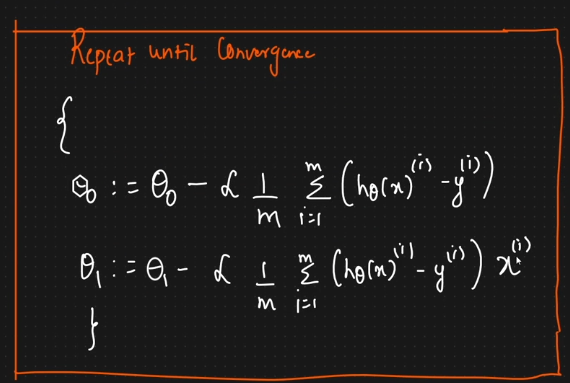 Repeat until Convergence
{
θ₀ := θ₀ - α 1/m Σᵢ₌₁ᵐ (hθ(x)⁽ⁱ⁾ - y⁽ⁱ⁾)
θ₁ := θ₁ - α 1/m Σᵢ₌₁ᵐ (hθ(x)⁽ⁱ⁾ - y⁽ⁱ⁾) x⁽ⁱ⁾
}